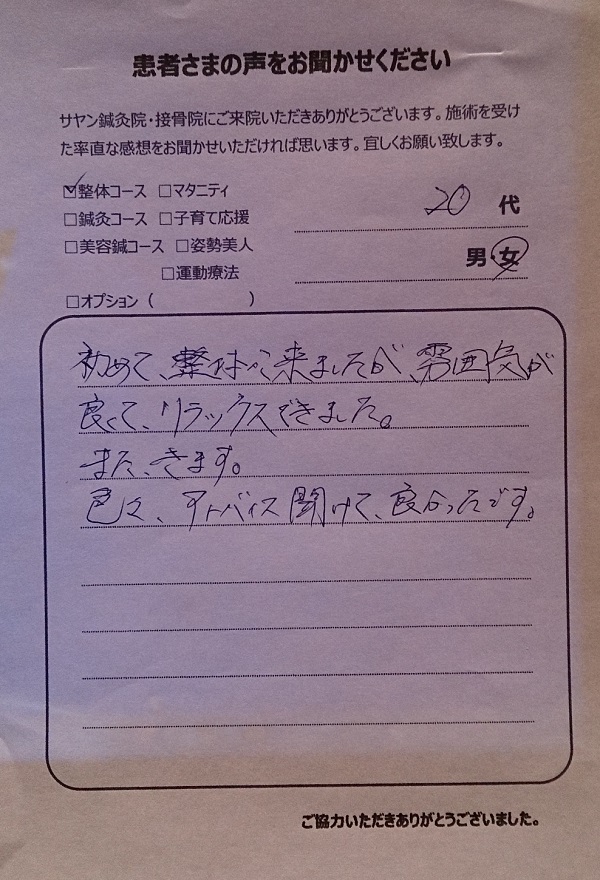 患者さまの声をお聞かせください
サヤン鍼灸院・接骨院にご来院いただきありがとうございます。施術を受け
た率直な感想をお聞かせいただければ思います。宜しくお願い致します。
☑整体コース □マタニティ
□鍼灸コース □子育て応援
□美容鍼コース □姿勢美人
□運動療法
□オプション ( )
20 代
男・女
初めて、整体へ来ましたが、雰囲気が
良くて、リラックスできました。
また、きます。
色々、アドバイス聞けて、良かったです。
ご協力いただきありがとうございました。